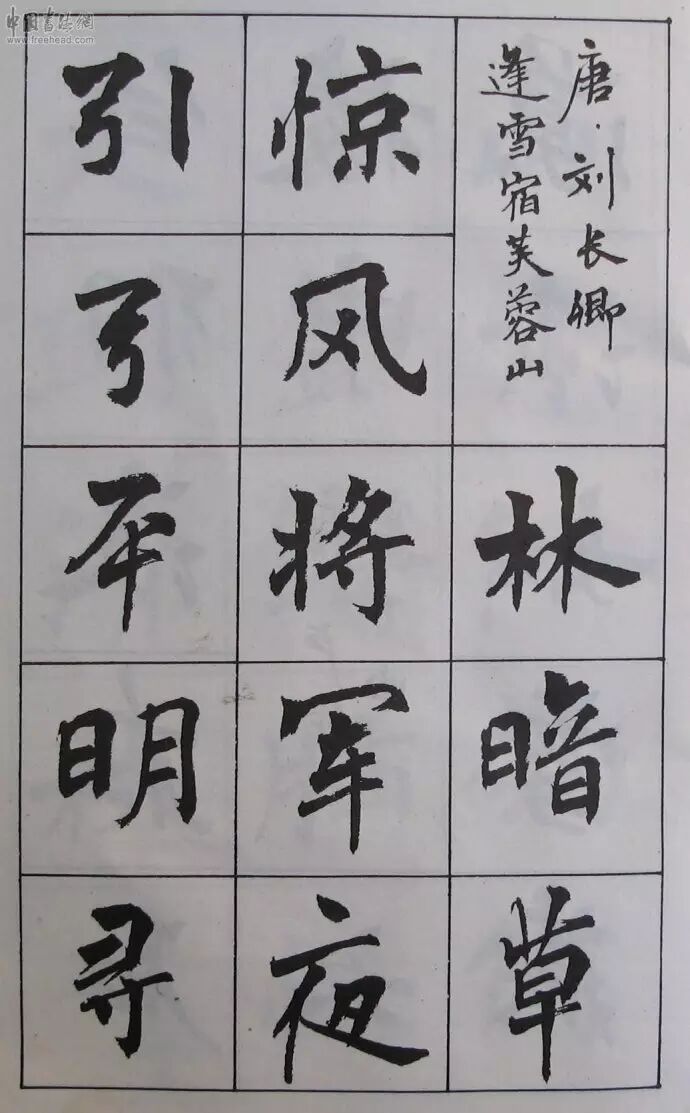 中國書法網
www.freehead.com
唐·刘长卿
逢雪宿芙蓉山
林暗草
惊风将军夜
引弓平明寻